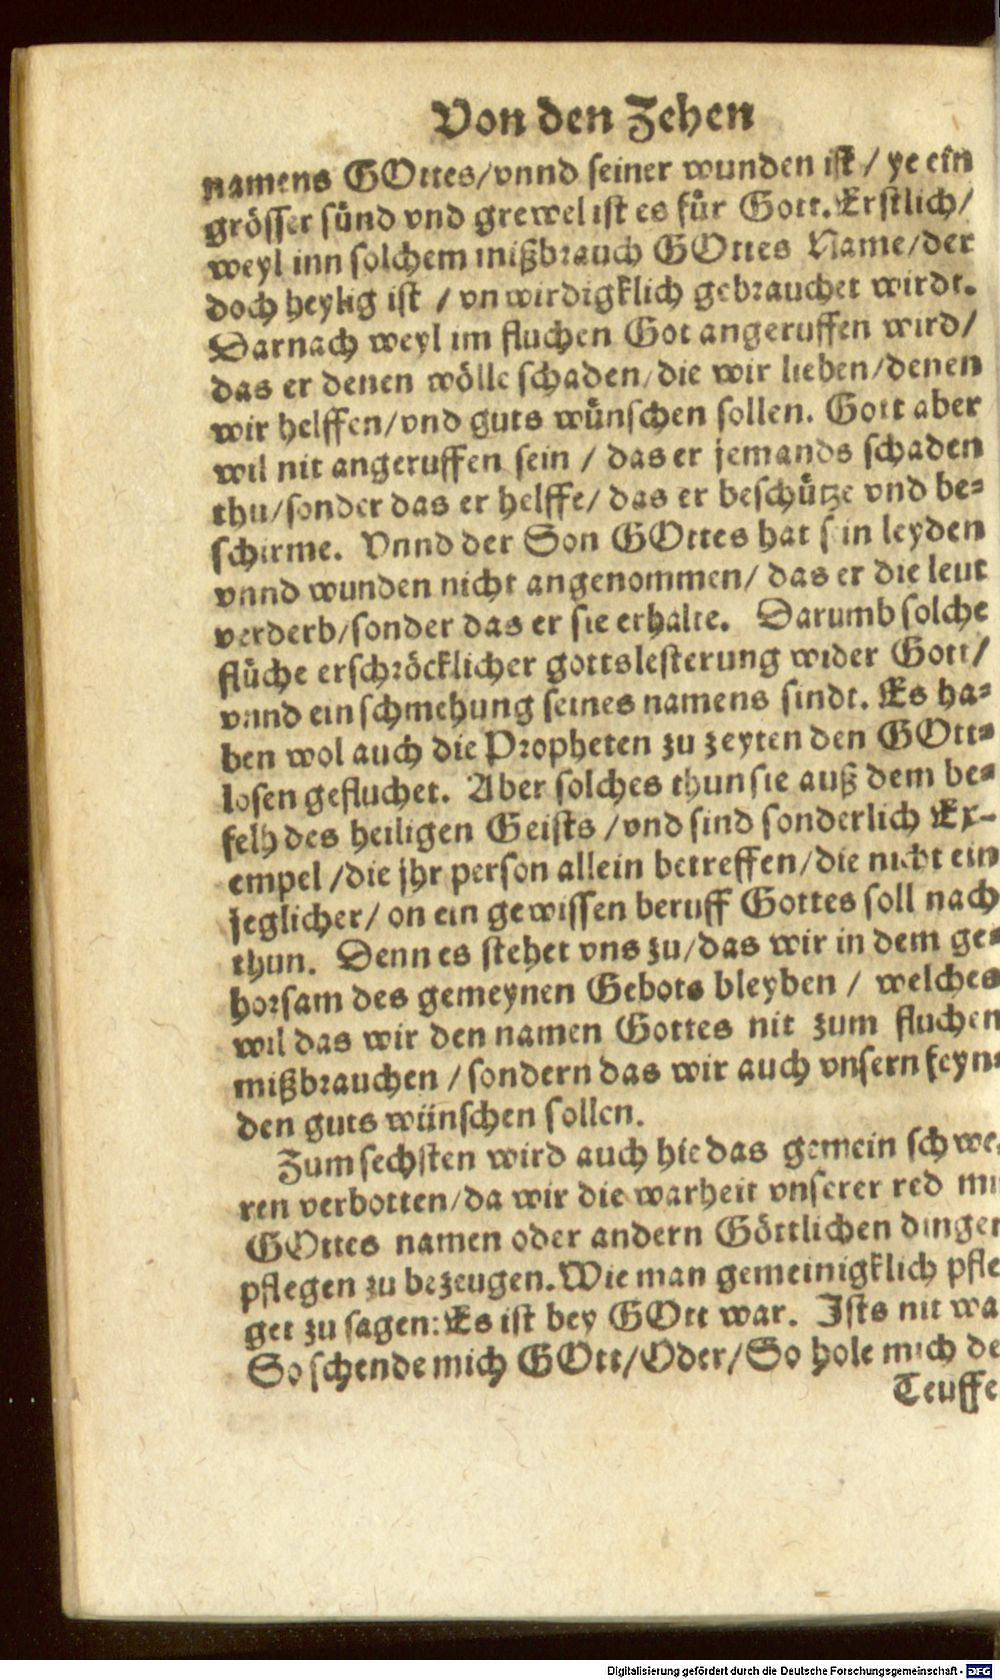 Von den Zehen
namens GOttes/vnnd seiner wunden ist / ye ein
grösser sünd vnd grewel ist es für Gott. Erstlich/
weyl inn solchem mißbrauch GOttes Name/der
doch heylig ist / vnwirdigklich gebrauchet wirdt.
Darnach weyl im fluchen Got angeruffen wird/
das er denen wölle schaden/die wir lieben/denen
wir helffen/vnd guts wünschen sollen. Gott aber
wil nit angeruffen sein / das er jemands schaden
thu/sonder das er helffe/ das er beschütze vnd be-
schirme. Vnnd der Son GOttes hat s in leyden
vnnd wunden nicht angenommen/ das er die leut
verderb/sonder das er sie erhalte. Darumb solche
flüche erschröcklicher gottslesterung wider Gott/
vnnd ein schmehung seines namens sindt. Es ha-
ben wol auch die Propheten zu zeyten den GOtt-
losen gefluchet. Aber solches thun sie auß dem be-
felh des heiligen Geists /vnd sind sonderlich Ex-
empel /die jhr person allein betreffen/die nicht ein
jeglicher/ on ein gewissen beruff Gottes soll nach
thun. Denn es stehet vns zu/das wir in dem ge-
horsam des gemeynen Gebots bleyben / welches
wil das wir den namen Gottes nit zum fluchen
mißbrauchen /sondern das wir auch vnsern feyn-
den guts wünschen sollen.
Zum sechsten wird auch hie das gemein schwe-
ren verbotten/da wir die warheit vnserer red mi
GOttes namen oder andern Göttlichen dingen
pflegen zu bezeugen. Wie man gemeinigklich pfle
get zu sagen: Es ist bey GOtt war. Ists nit wa
So schende mich GOtt/Oder/So hole mich de
Teuffe
Digitalisierung gefördert durch die Deutsche Forschungsgemeinschaft - DFG